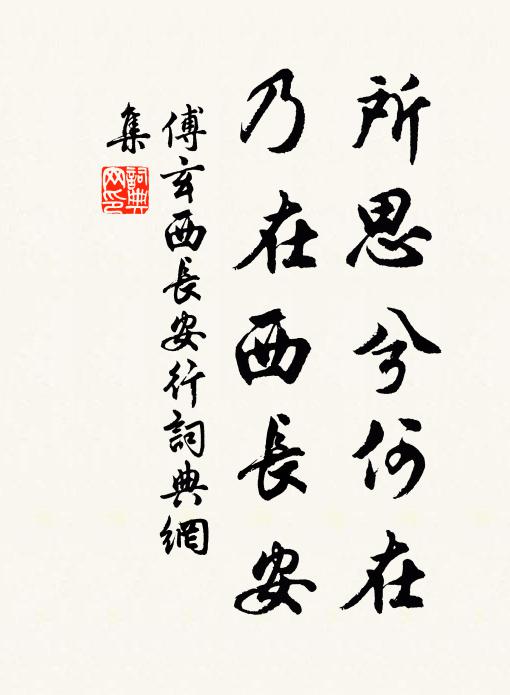 所思兮何在
乃在西長安
傅玄西長安行詞典網
集
詞典網印